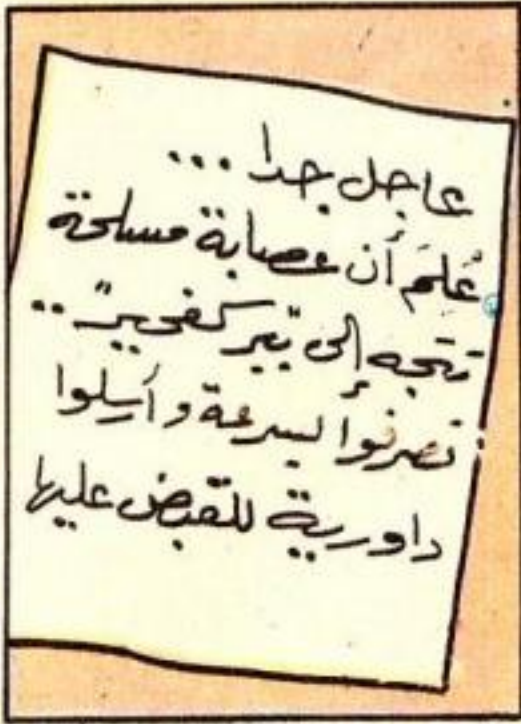 عاجل جدا ...
عُلِمَ أن عصابة مسلحة
تتجه إلى "بير كفحير" ..
تصرفوا بسرعة وأرسلوا
داورية للقبض عليها